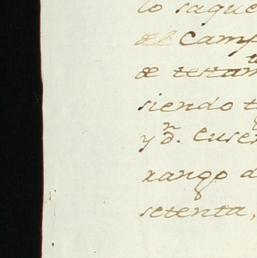 lo saque
del Camp
de testam
siendo t
y dn. Euse
rango d
setenta,